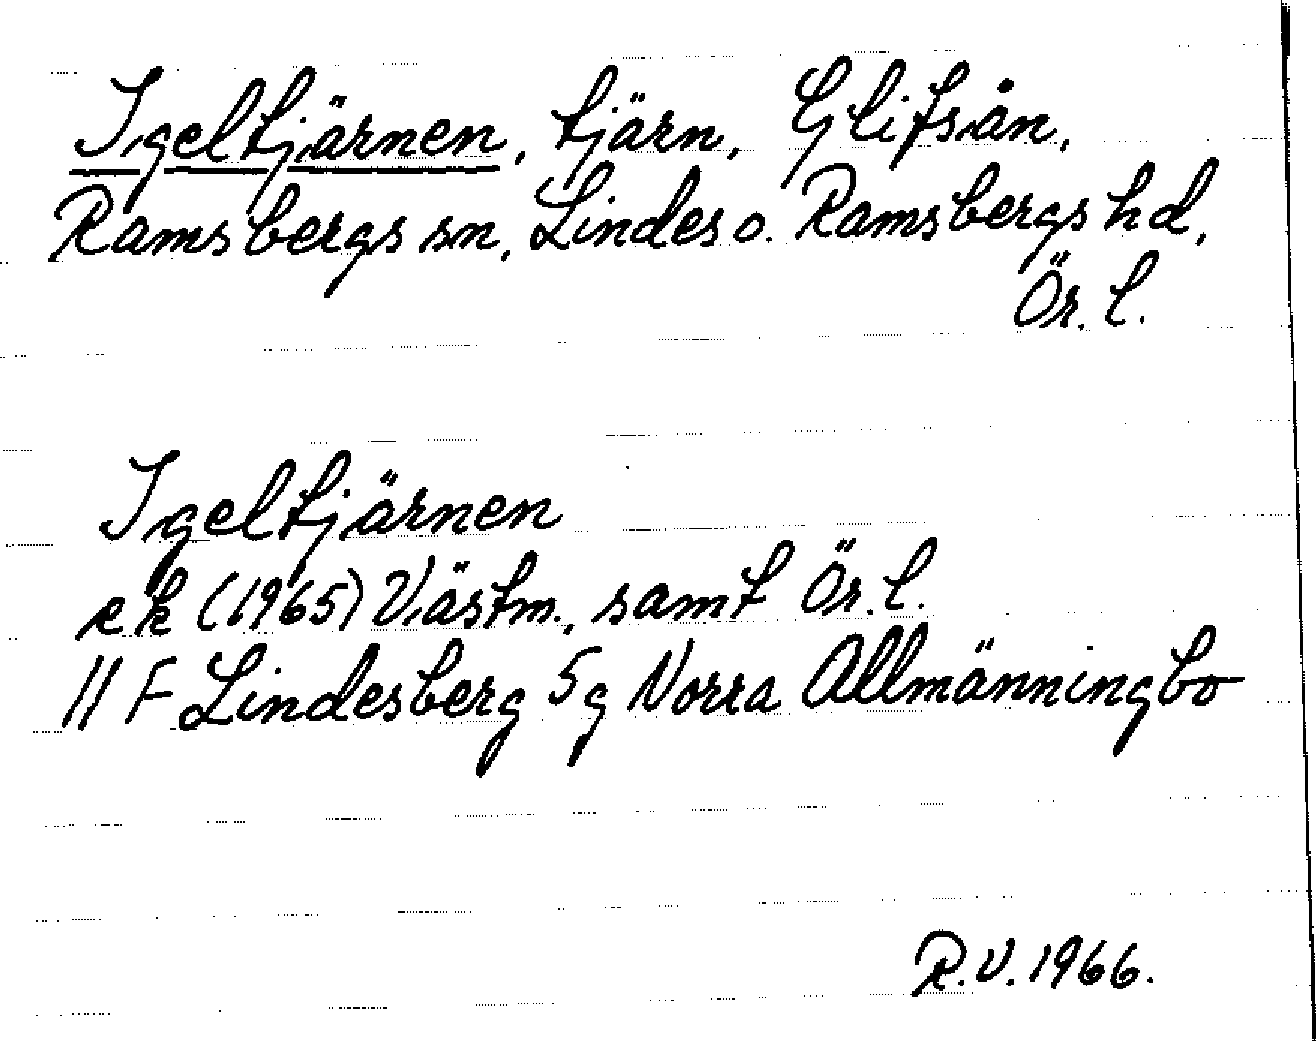 Igeltjärnen, tjärn, Glifsån,
Ramsbergs sn, Lindes o. Ramsbergs hd,
Ör. l.
Igeltjärnen
ek (1965) Västm., samt Ör. l.
11 F Lindesberg 5g Norra Allmänningbo
R.V. 1966.